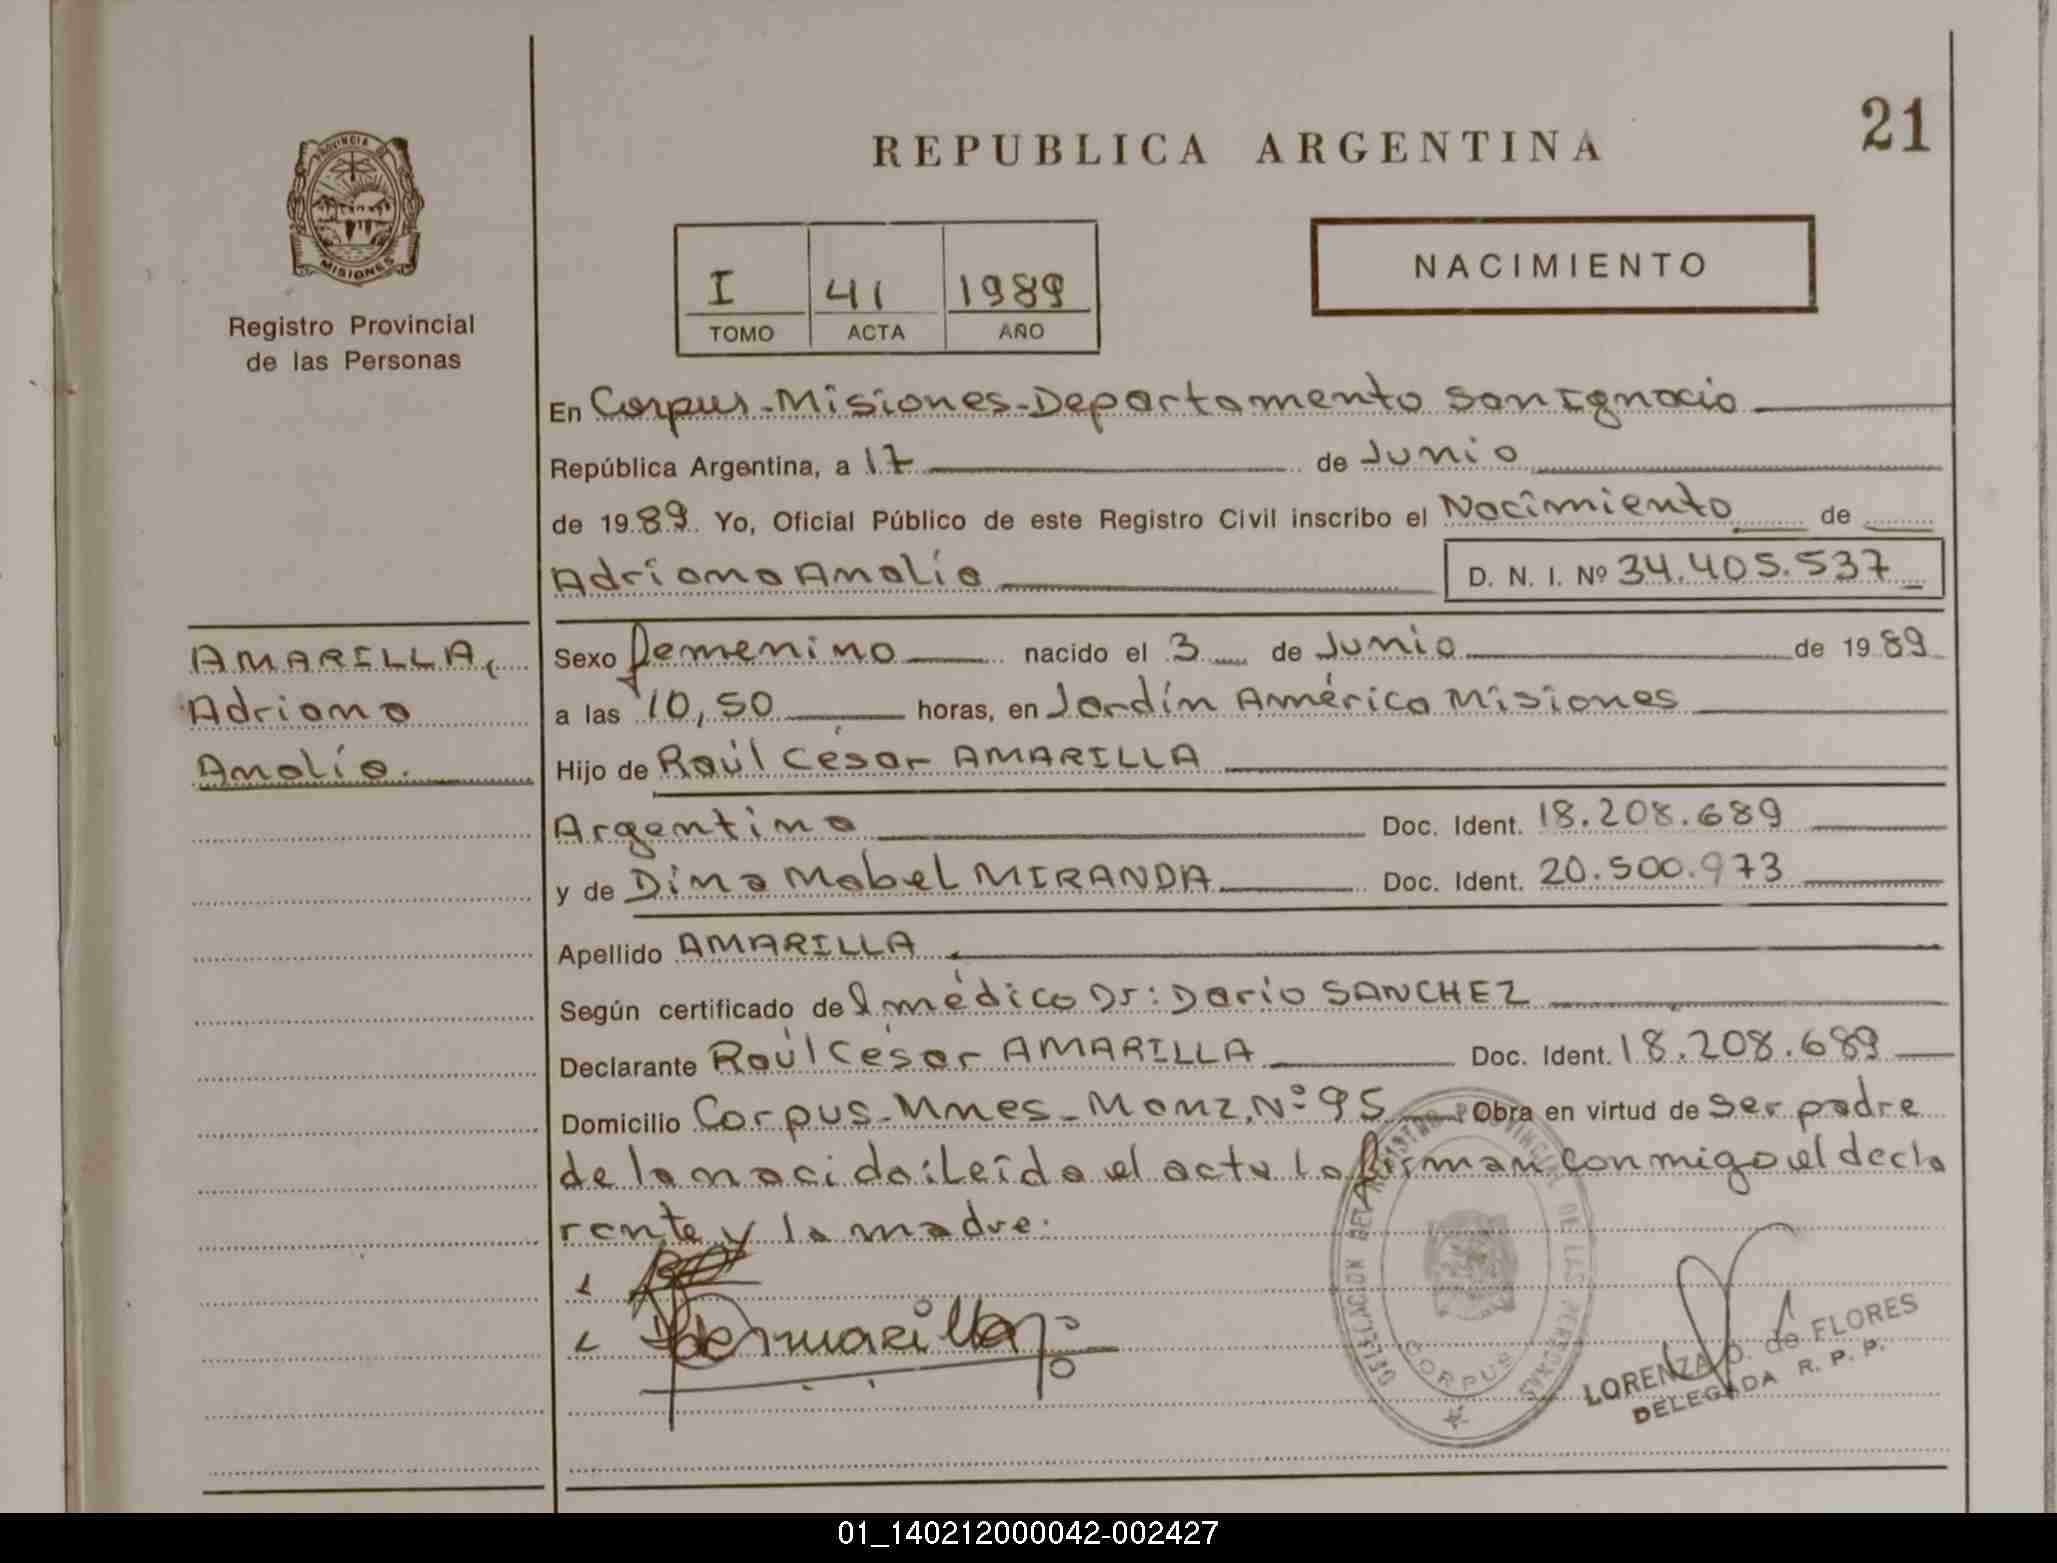 21
REPUBLICA ARGENTINA
PROVINCIA DE
MISIONES
Registro Provincial
de las Personas
NACIMIENTO
I 41 1989
TOMO ACTA AÑO
En Corpus-Misiones-Departamento San Ignacio
República Argentina, a 17 de Junio
de 1989 Yo, Oficial Público de este Registro Civil inscribo el Nacimiento de
Adriana Analía D. N. I. Nº 34.405.537
AMARILLA,
Adriana
Analía.
Sexo femenino nacido el 3 de Junio de 1989
a las 10,50 horas, en Jardín América Misiones
Hijo de Raúl César AMARILLA
Argentino Doc. Ident. 18.208.689
y de Dina Mabel MIRANDA Doc. Ident. 20.500.973
Apellido AMARILLA
Según certificado del médico Dr: Darío SANCHEZ
Declarante Raúl César AMARILLA Doc. Ident. 18.208.689
Domicilio Corpus-Mnes-Manz.Nº95 Obra en virtud de ser padre
de la nacida: Leída el acta la firman conmigo el decla
rante y la madre.
DELEGACION DEL REGISTRO PROVINCIAL DE LAS PERSONAS
CORPUS
LORENZA D. de FLORES
DELEGADA R. P. P.
01_140212000042-002427